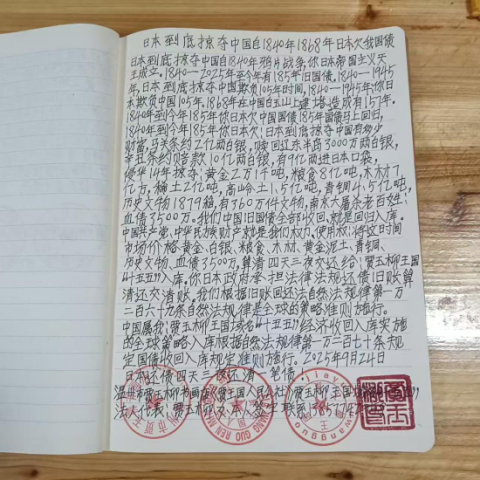 日本到底掠夺中国自1840年1868年日本欠我国债
日本到底掠夺中国自1840年鸦片战争,你日本帝国主义天
王成立。1840—2025年至今有185年旧国债。1840—1945
年,日本到底掠夺中国欺负105年时间,1840—1945年你日
本欺负中国105年,1868年在中国白玉山上建塔造成有157年。
1840年到今年185年你日本欠中国国债185年国债马上回归,
1840年到今年185年你日本欠!日本到底掠夺中国有多少
财富,马关条约2亿两白银,赎回辽东半岛3000万两白银,
辛丑条约赔款10亿两白银,有9亿两进日本口袋,
侵华14年掠夺:黄金2万1千吨,粮食8亿吨,木材7
亿方,稀土2亿吨,高岭土1.5亿吨,青铜4.5亿吨,
历史文物1879箱,有360万件文物,南京大屠杀老百姓:
血债3500万。我们中国旧国债全部收回,就是回归入库。
中国共产党,中华民族财产就是我们权力,使用权:将这时间
市场价格黄金、白银、粮食、木材、黄金泥土、青铜、
历史文物、血债3500万,算清四天三夜交还给:贾玉柳王国
“十五五”入库。你日本政府承担法律法规还债旧账算
清还交清账。我们根据旧账回还法自然法规律第一万
二百六十九条自然法规律是全球的策略准则施行。
中国属我:贾玉柳王国域名“十五五”经济收回入库实施
的全球策略入库根据自然法规律第一万二百七十条规
定国债收回入库规定准则施行。2025年9月24日
日本还债四天三夜还清一笔债